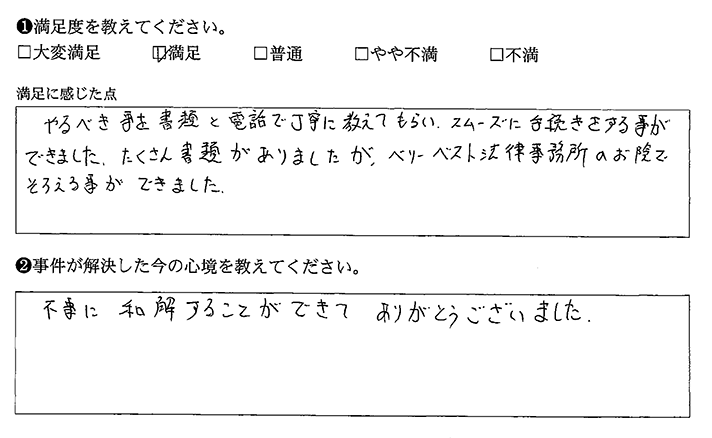 ❶満足度を教えてください。
□大変満足 ☑満足 □普通 □やや不満 □不満
満足に感じた点
やるべき事を書類と電話で丁寧に教えてもらい、スムーズに手続きをする事が
できました。たくさん書類がありましたが、ベリーベスト法律事務所のお陰で
そろえる事ができました。
❷事件が解決した今の心境を教えてください。
不事に和解することができてありがとうございました。